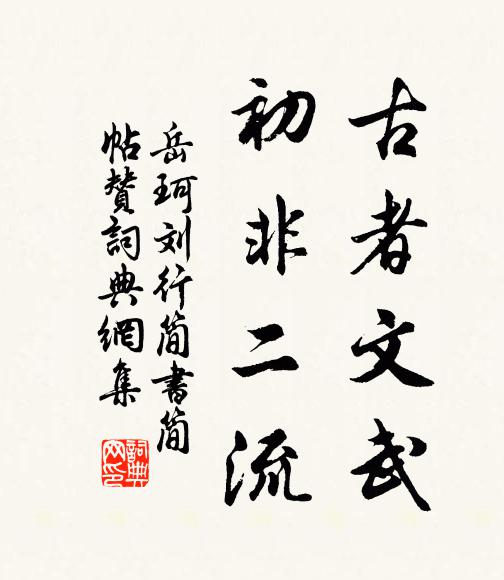 古者文武
初非二流
岳珂刘行简書简
帖赞詞典網集
詞典网印